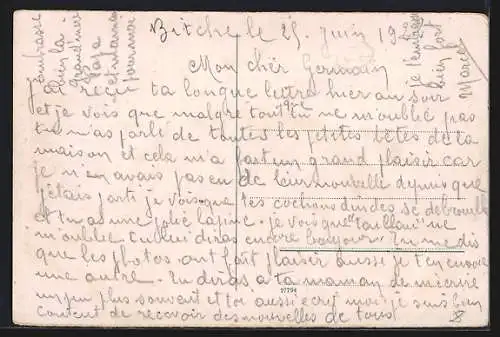 Bitche le 25 juin 19
Mon cher Germain
J'ai reçu ta longue lettre hier au soir
et je vois que malgré tout tu ne m'oublié pas
tu m'as parlé de toutes les petites bêtes de la
maison et cela m'a fait un grand plaisir car
je n'en avais pas eu de leur nouvelle depuis que
j'étais parti je vois que tes cochons dindes se débrouille
et tu as une jolie lapine. je vois que ne
m'oublie tu lui diras encore bonjour. Tu me dis
que les photos ont fait plaisir aussi je t'en envoie
une autre. Tu diras a ta maman de m'ecrire
un peu plus souvent et toi aussi ecris moi je suis bien
content de recevoir des nouvelles de tous
embrasse
bien la
grand mère
papa
et maman
pour moi
je t'embrasse
bien fort
Marcel
17794